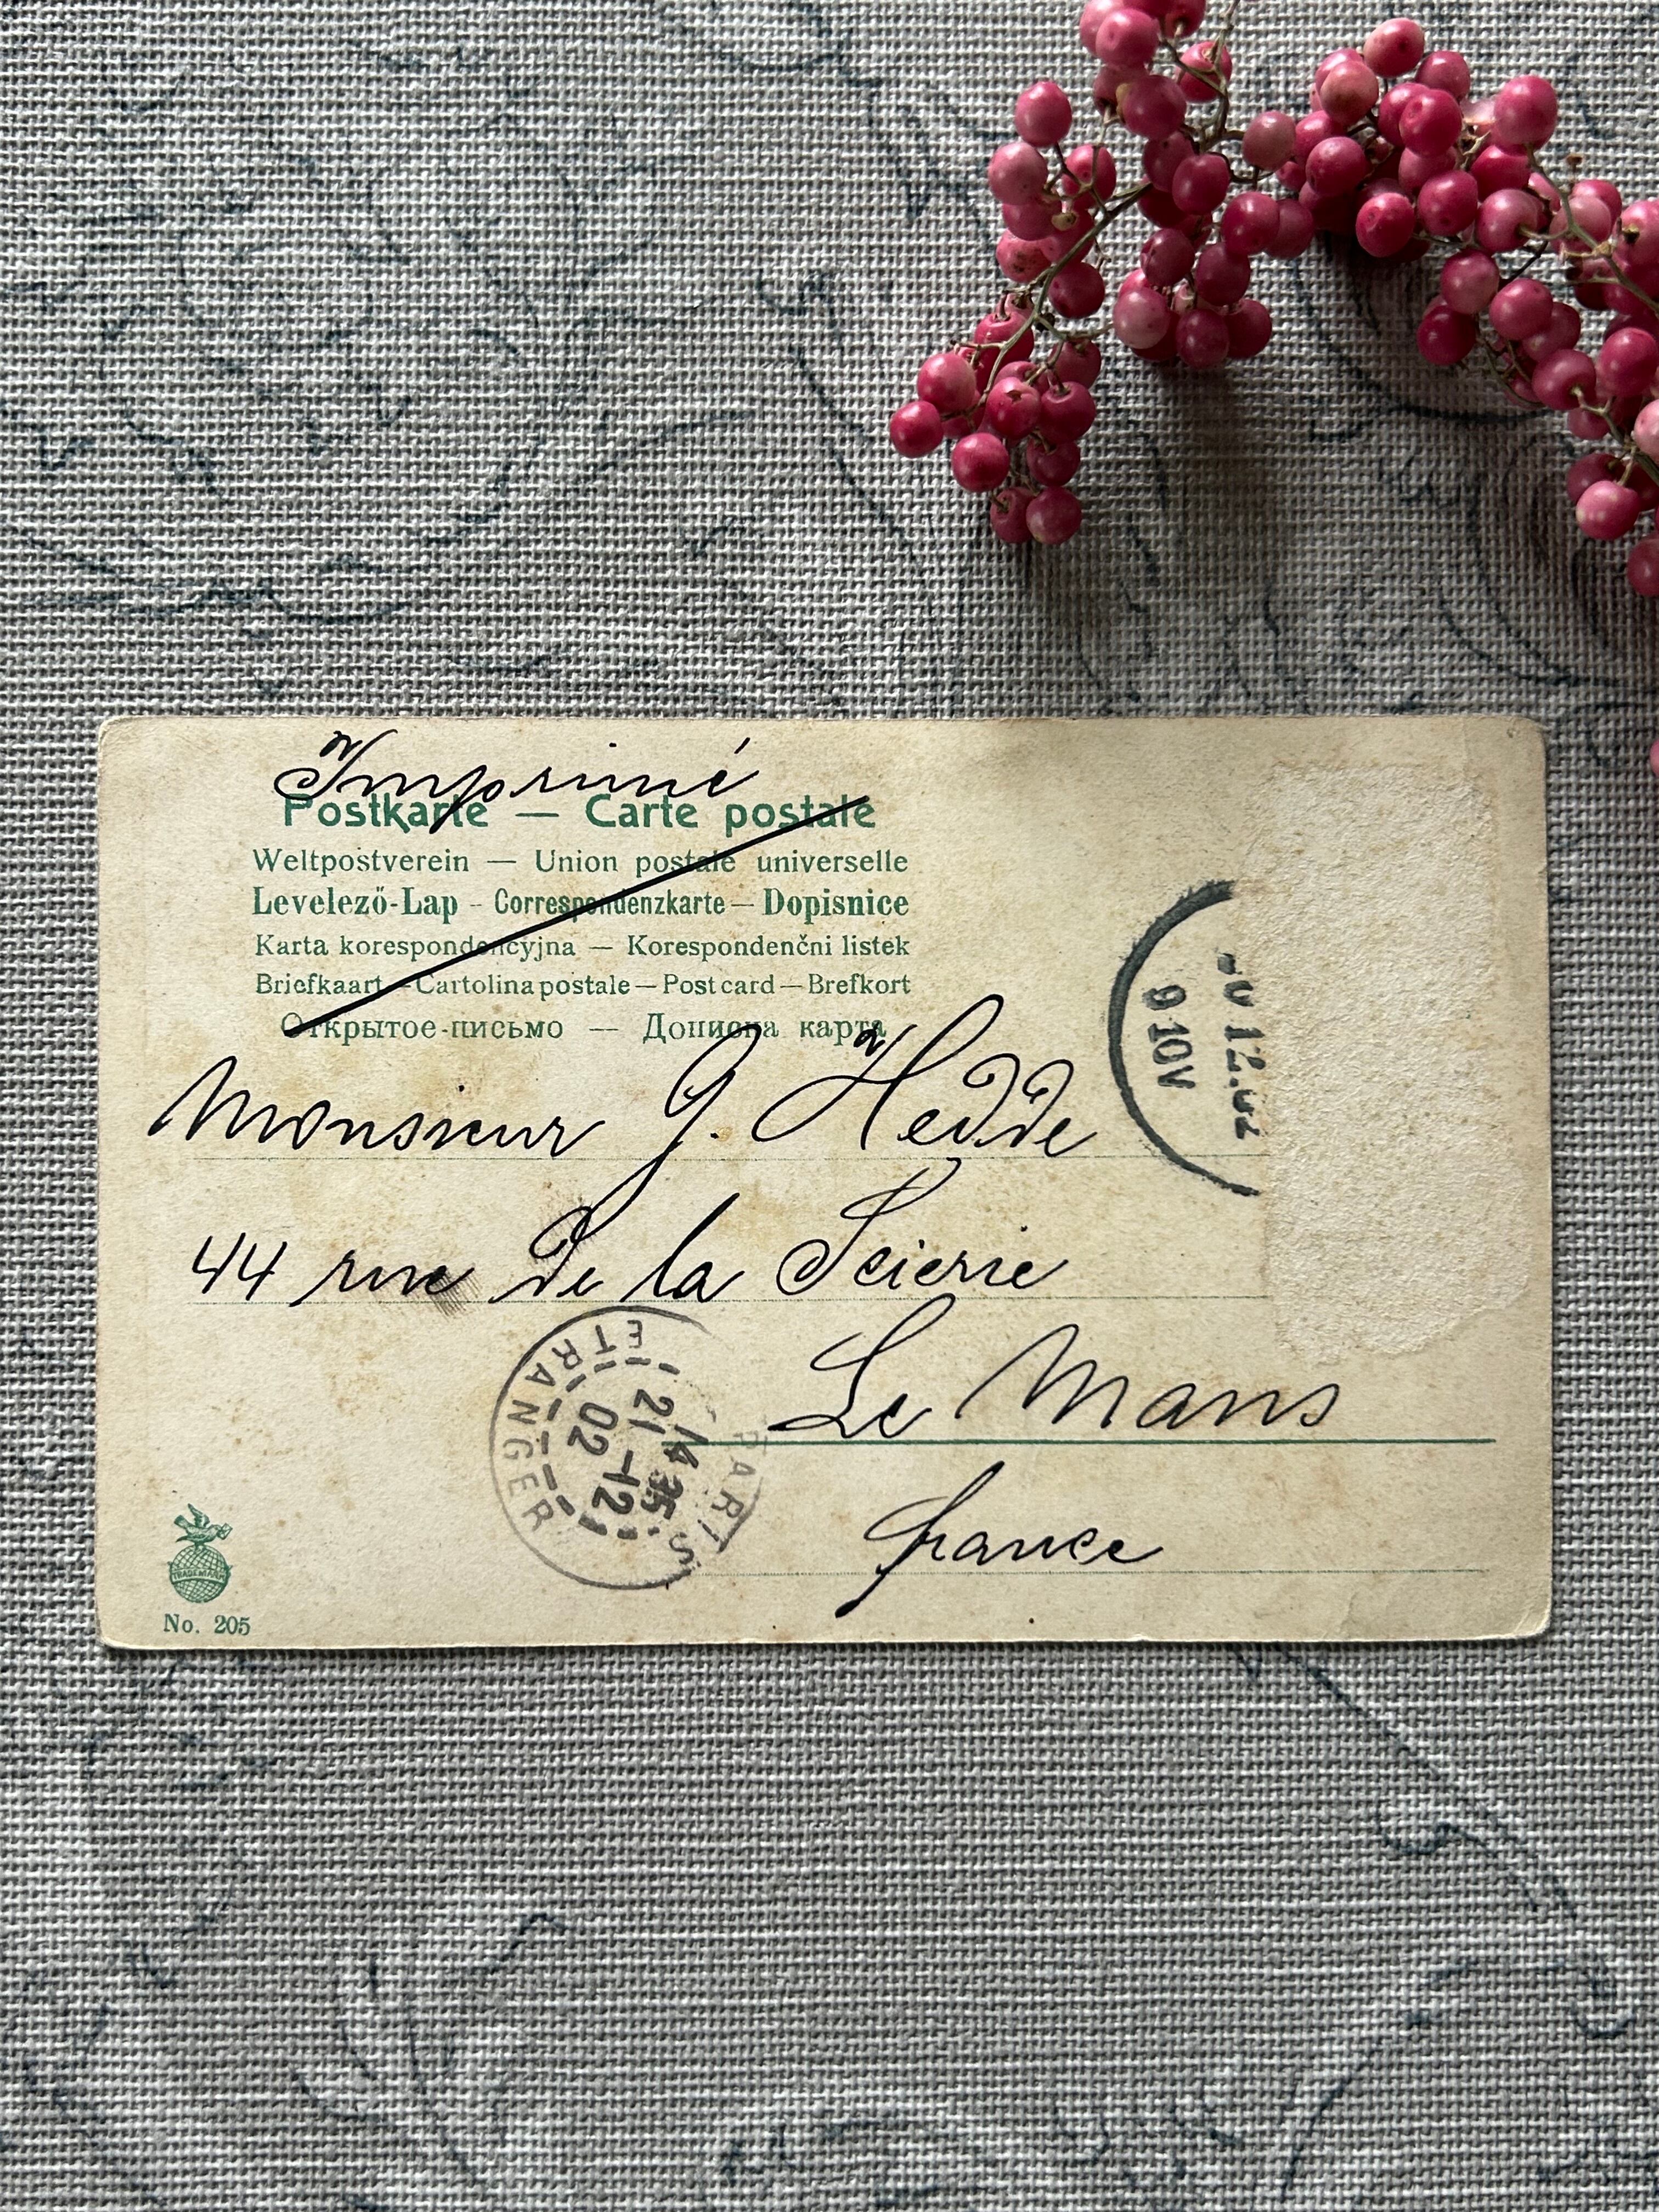 Imprimé
Postkarte — Carte postale
Weltpostverein — Union postale universelle
Levelező-Lap - Correspondenzkarte — Dopisnice
Karta korespondencyjna — Korespondenčni listek
Briefkaart — Cartolina postale — Post card — Brefkort
Открытое-письмо — Дописна карта
Monsieur G. Hedde
44 rue de la Scierie
Le Mans
France
9 10V
PARIS
ETRANGER
14 35
21 -12
02
TRADEMARK
No. 205